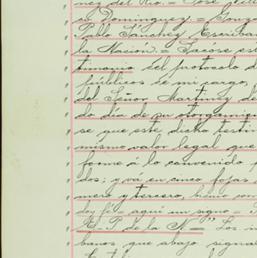 nez del Rio. = José
co Dominguez. = Gonz
Pablo Sánchez Escriban
la Nación. = Sacóse est
timonio del protocolo d
públicos de mi cargo,
del Señor Martinez de
do dia de su otorgamien
se que este dicho testim
mismo valor legal que
forme á lo convenido p
dos; y vá en cinco fojas
mero y tercero,
doy fé = aquí un signo =
E. P. de la N = Los in
banos que abajo signa